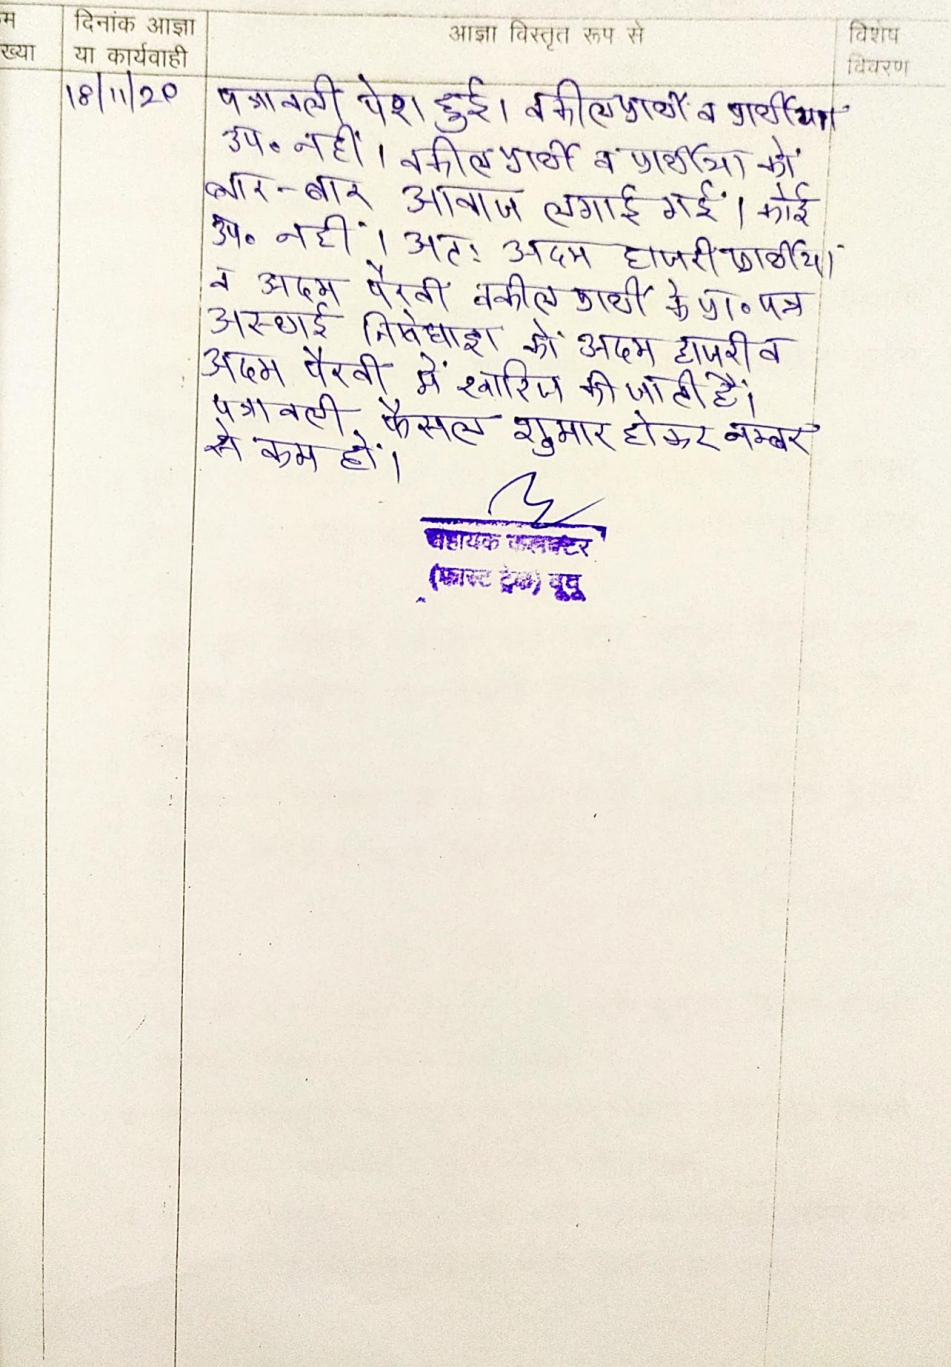 म
ख्या
दिनांक आज्ञा
या कार्यवाही
आज्ञा विस्तृत रूप से
विशेष
विवरण
18/11/20
पत्रावली पेश हुई। वकील प्रार्थी व प्रार्थीया
उप० नहीं। वकील प्रार्थी व प्रार्थीया को
बार-बार आवाज लगाई गई। कोई
उप० नहीं। अतः अदम हाजरी प्रार्थीया
व अदम पैरवी वकील प्रार्थी के प्रा० पत्र
अस्थाई निषेधाज्ञा को अदम हाजरी व
अदम पैरवी में खारिज की जाती है।
पत्रावली फैसल शुमार होकर नम्बर
से कम हो।
सहायक कलक्टर
(फास्ट ट्रेक) दूदू